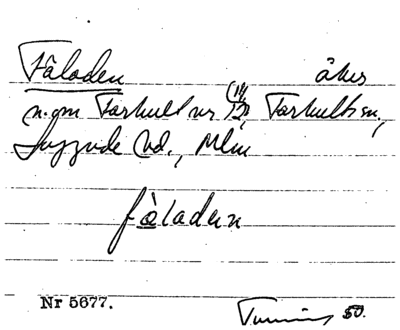 Fäladen åker
n.om Farhult nr 12, Farhults sn,
Luggude hd., Mlm
fäladen
Nr 5677.
50.